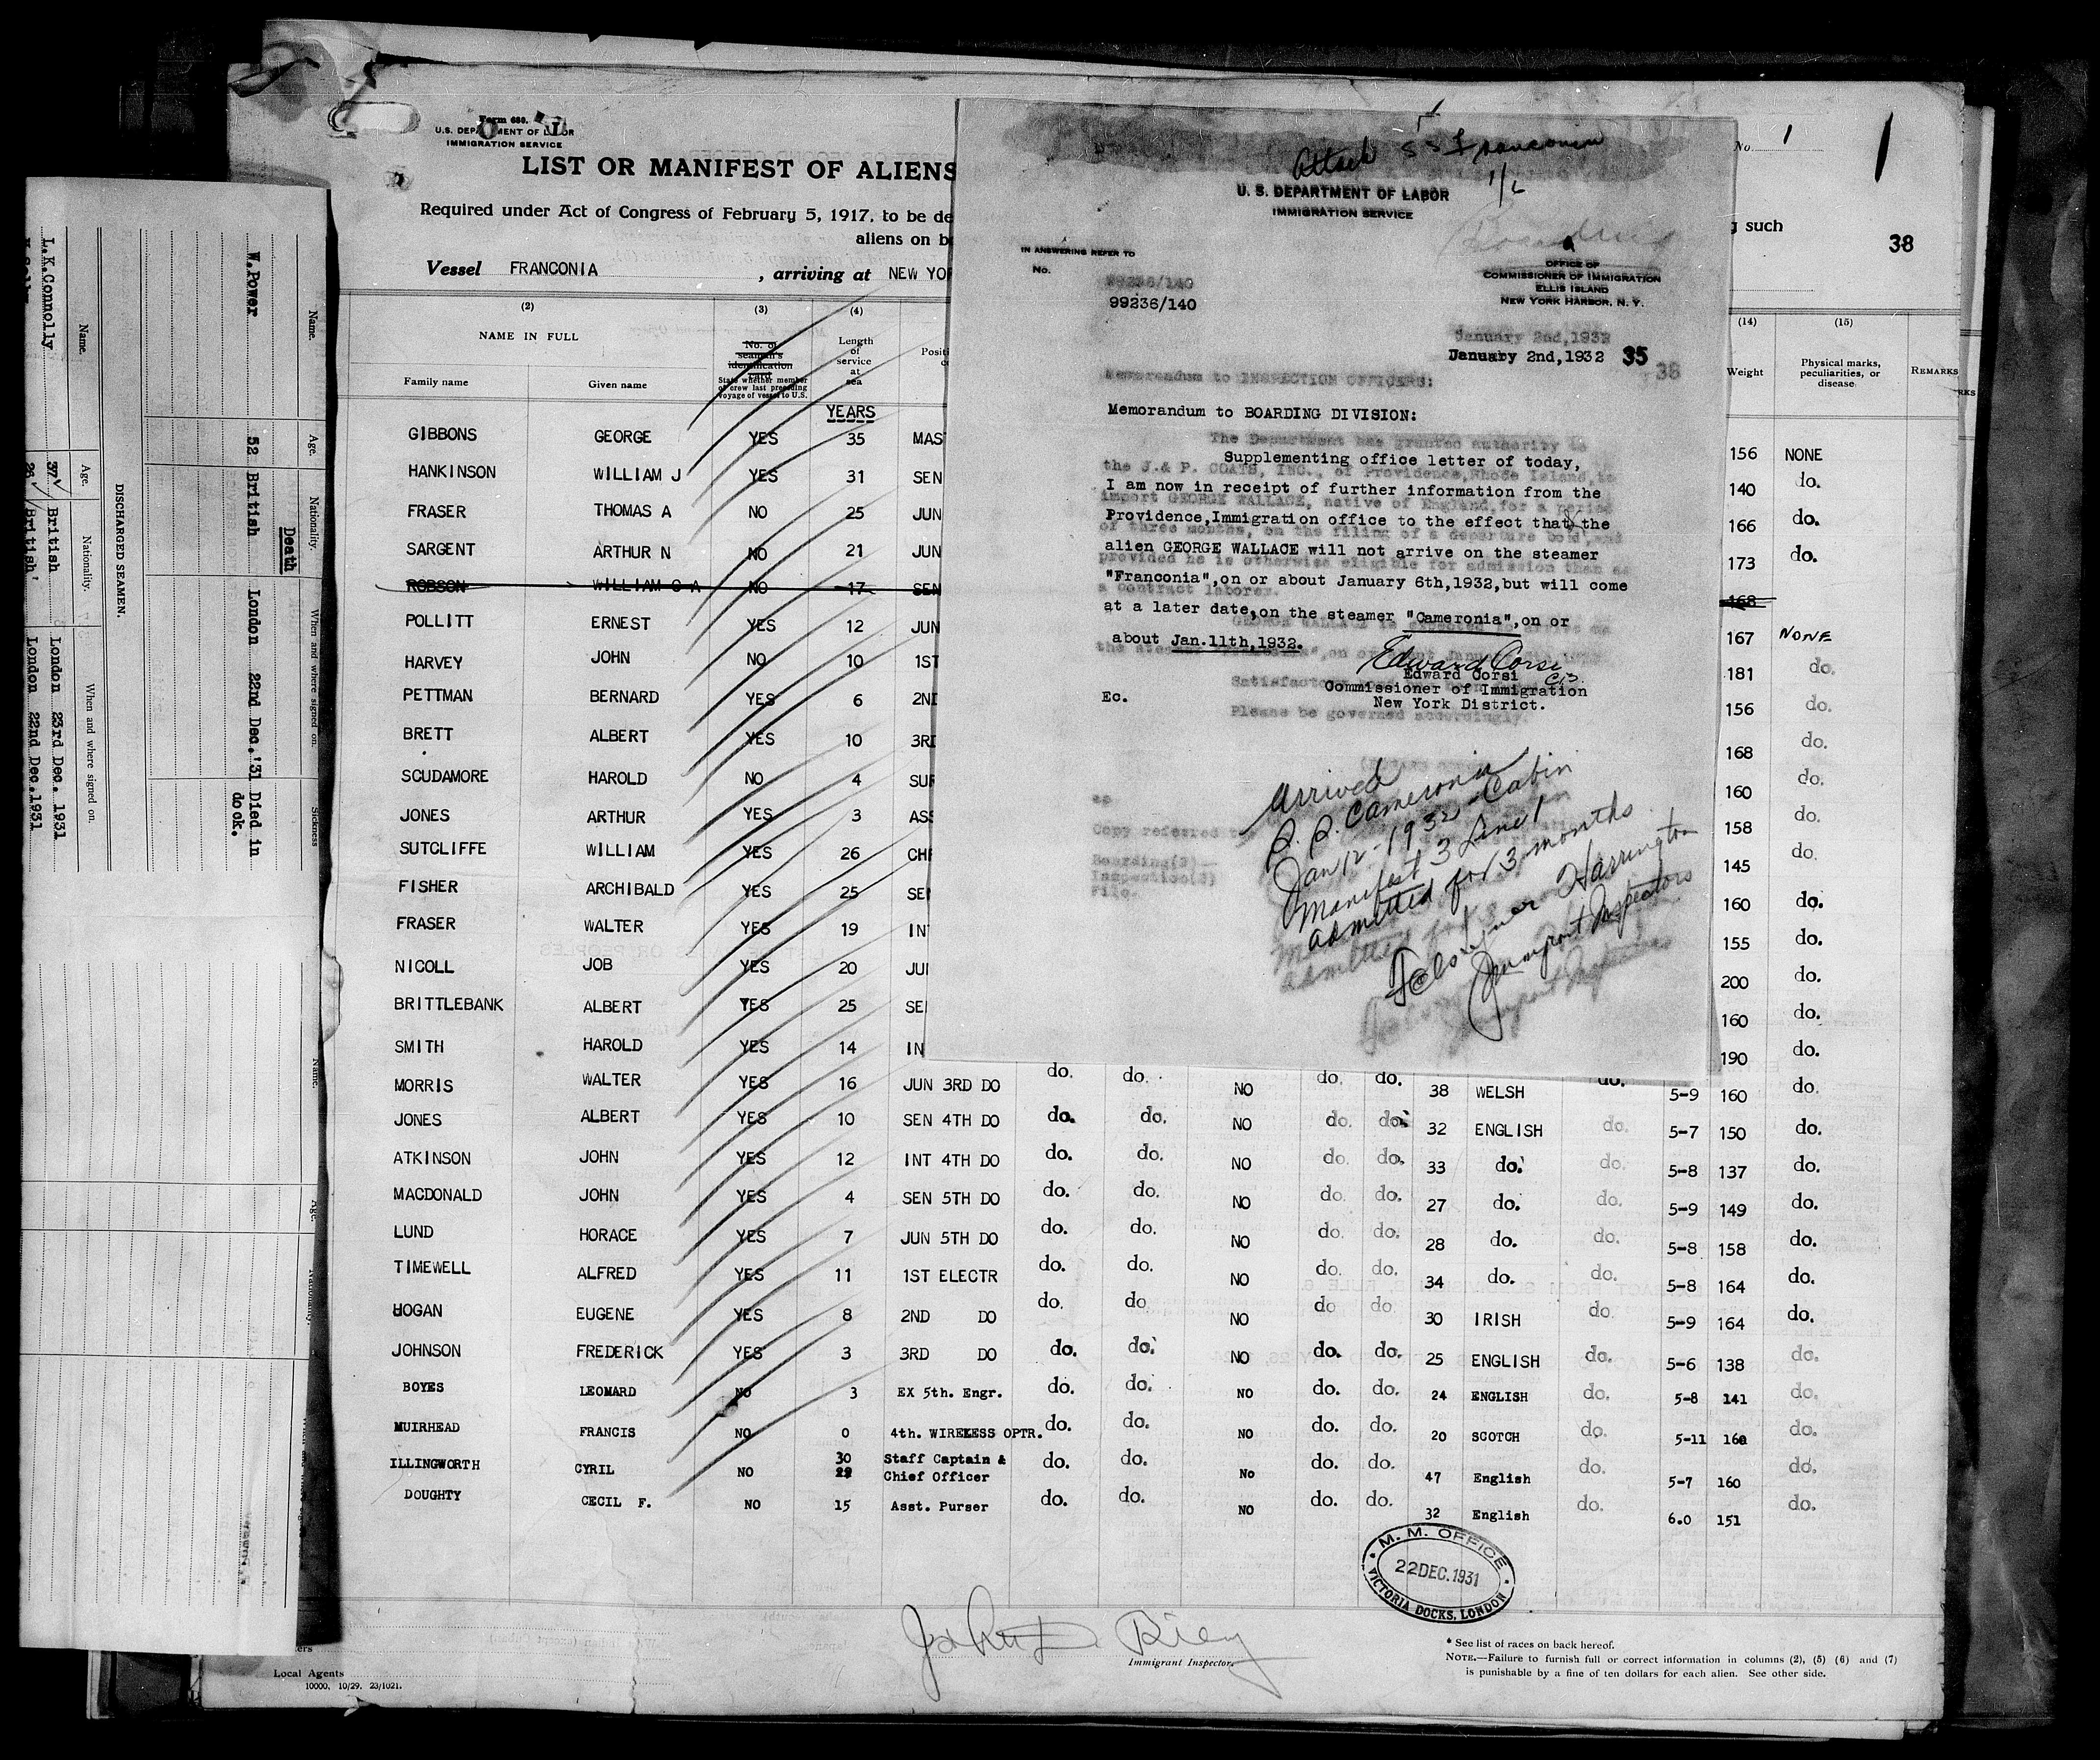 Form 680.
U.S. DEPARTMENT OF LABOR
IMMIGRATION SERVICE
LIST OR MANIFEST OF ALIENS
Required under Act of Congress of February 5, 1917, to be de
aliens on b
Vessel FRANCONIA , arriving at NEW YOR
No. 1
1
g such
38
(2) (3) (4)
NAME IN FULL
Family name Given name
No. of seaman's identification card
State whether member of crew last preceding voyage of vessel to U.S.
Length of service at sea
Positi
(14) (15)
Weight Physical marks, peculiarities, or disease REMARKS
YEARS
GIBBONS GEORGE YES 35 MAS 156 NONE
HANKINSON WILLIAM J YES 31 SEN 140 do.
FRASER THOMAS A NO 25 JUN 166 do.
SARGENT ARTHUR N NO 21 JUN 173 do.
ROBSON WILLIAM C A NO 17 SEN 168
POLLITT ERNEST YES 12 JUN 167 NONE
HARVEY JOHN NO 10 1ST 181 do.
PETTMAN BERNARD YES 6 2ND 156 do.
BRETT ALBERT YES 10 3RD 168 do.
SCUDAMORE HAROLD NO 4 SUR 160 do.
JONES ARTHUR YES 3 ASS 158 do.
SUTCLIFFE WILLIAM YES 26 CHI 145 do.
FISHER ARCHIBALD YES 25 SEN 160 do.
FRASER WALTER YES 19 INT 155 do.
NICOLL JOB YES 20 JUI 200 do.
BRITTLEBANK ALBERT YES 25 SE 160 do.
SMITH HAROLD YES 14 IN 190 do.
MORRIS WALTER YES 16 JUN 3RD DO do. do. NO do. do. 38 WELSH do. 5-9 160 do.
JONES ALBERT YES 10 SEN 4TH DO do. do. NO do. do. 32 ENGLISH do. 5-7 150 do.
ATKINSON JOHN YES 12 INT 4TH DO do. do. NO do. do. 33 do. do. 5-8 137 do.
MACDONALD JOHN YES 4 SEN 5TH DO do. do. NO do. do. 27 do. do. 5-9 149 do.
LUND HORACE YES 7 JUN 5TH DO do. do. NO do. do. 28 do. do. 5-8 158 do.
TIMEWELL ALFRED YES 11 1ST ELECTR do. do. NO do. do. 34 do. do. 5-8 164 do.
HOGAN EUGENE YES 8 2ND DO do. do NO do do. 30 IRISH do. 5-9 164 do.
JOHNSON FREDERICK YES 3 3RD DO do. do. NO do. do. 25 ENGLISH do. 5-6 138 do.
BOYES LEONARD NO 3 EX 5th. Engr. do. do. NO do. do. 24 ENGLISH do. 5-8 141 do.
MUIRHEAD FRANCIS NO 0 4th. WIRELESS OPTR. do. do. NO do. do. 20 SCOTCH do. 5-11 160 do.
ILLINGWORTH CYRIL NO 30 22 Staff Captain & Chief Officer do. do. No do. do. 47 English do. 5-7 160 do.
DOUGHTY CECIL F. NO 15 Asst. Purser do. do. NO do. do. 32 English do. 6.0 151 do.
M. M. OFFICE
22 DEC. 1931
VICTORIA DOCKS, LONDON
Immigrant Inspector.
* See list of races on back hereof.
NOTE.—Failure to furnish full or correct information in columns (2), (5) (6) and (7)
is punishable by a fine of ten dollars for each alien. See other side.
ers
Local Agents
10000, 10/29. 23/1021.
Attach S S Franconia
1/2
U. S. DEPARTMENT OF LABOR
IMMIGRATION SERVICE
IN ANSWERING REFER TO
No.
99236/140
99236/140
OFFICE OF
COMMISSIONER OF IMMIGRATION
ELLIS ISLAND
NEW YORK HARBOR, N. Y.
January 2nd,1932
January 2nd,1932 35
38
Memorandum to INSPECTION OFFICERS:
Memorandum to BOARDING DIVISION:
The Department has granted authority to
Supplementing office letter of today,
the J.& P. COATS, INC., of Providence,Rhode Island,to
I am now in receipt of further information from the
import GEORGE WALLACE, native of England,for a period
Providence,Immigration office to the effect that the
of three months, on the filing of a departure bond,and
alien GEORGE WALLACE will not arrive on the steamer
provided he is otherwise eligible for admission than as
"Franconia",on or about January 6th,1932,but will come
a contract laborer.
at a later date,on the steamer "Cameronia",on or
GEORGE WALLACE is expected to arrive on
about Jan.11th,1932.
Edward Corsi
Edward Corsi
Commissioner of Immigration
New York District.
Ec.
Please be governed accordingly.
Copy referred to
Boarding(2)—
Inspection(3)
File.
Arrived
S. S. Cameronia
Jan 12 - 1932 - Cabin
Manifest 3 Line 1
admitted for 3 months
Harrington
Immigrant Inspectors
Name. Age. Nationality. When and where signed on. Sickness
Death
W.Power 52 British London 22nd Dec.'31 Died in dock.
DISCHARGED SEAMEN.
Name. Age. Nationality. When and where signed on.
L.K.Connolly 37 British London 23rd Dec. 1931
26 British London 22nd Dec.1931
Name. Age. Nationality.